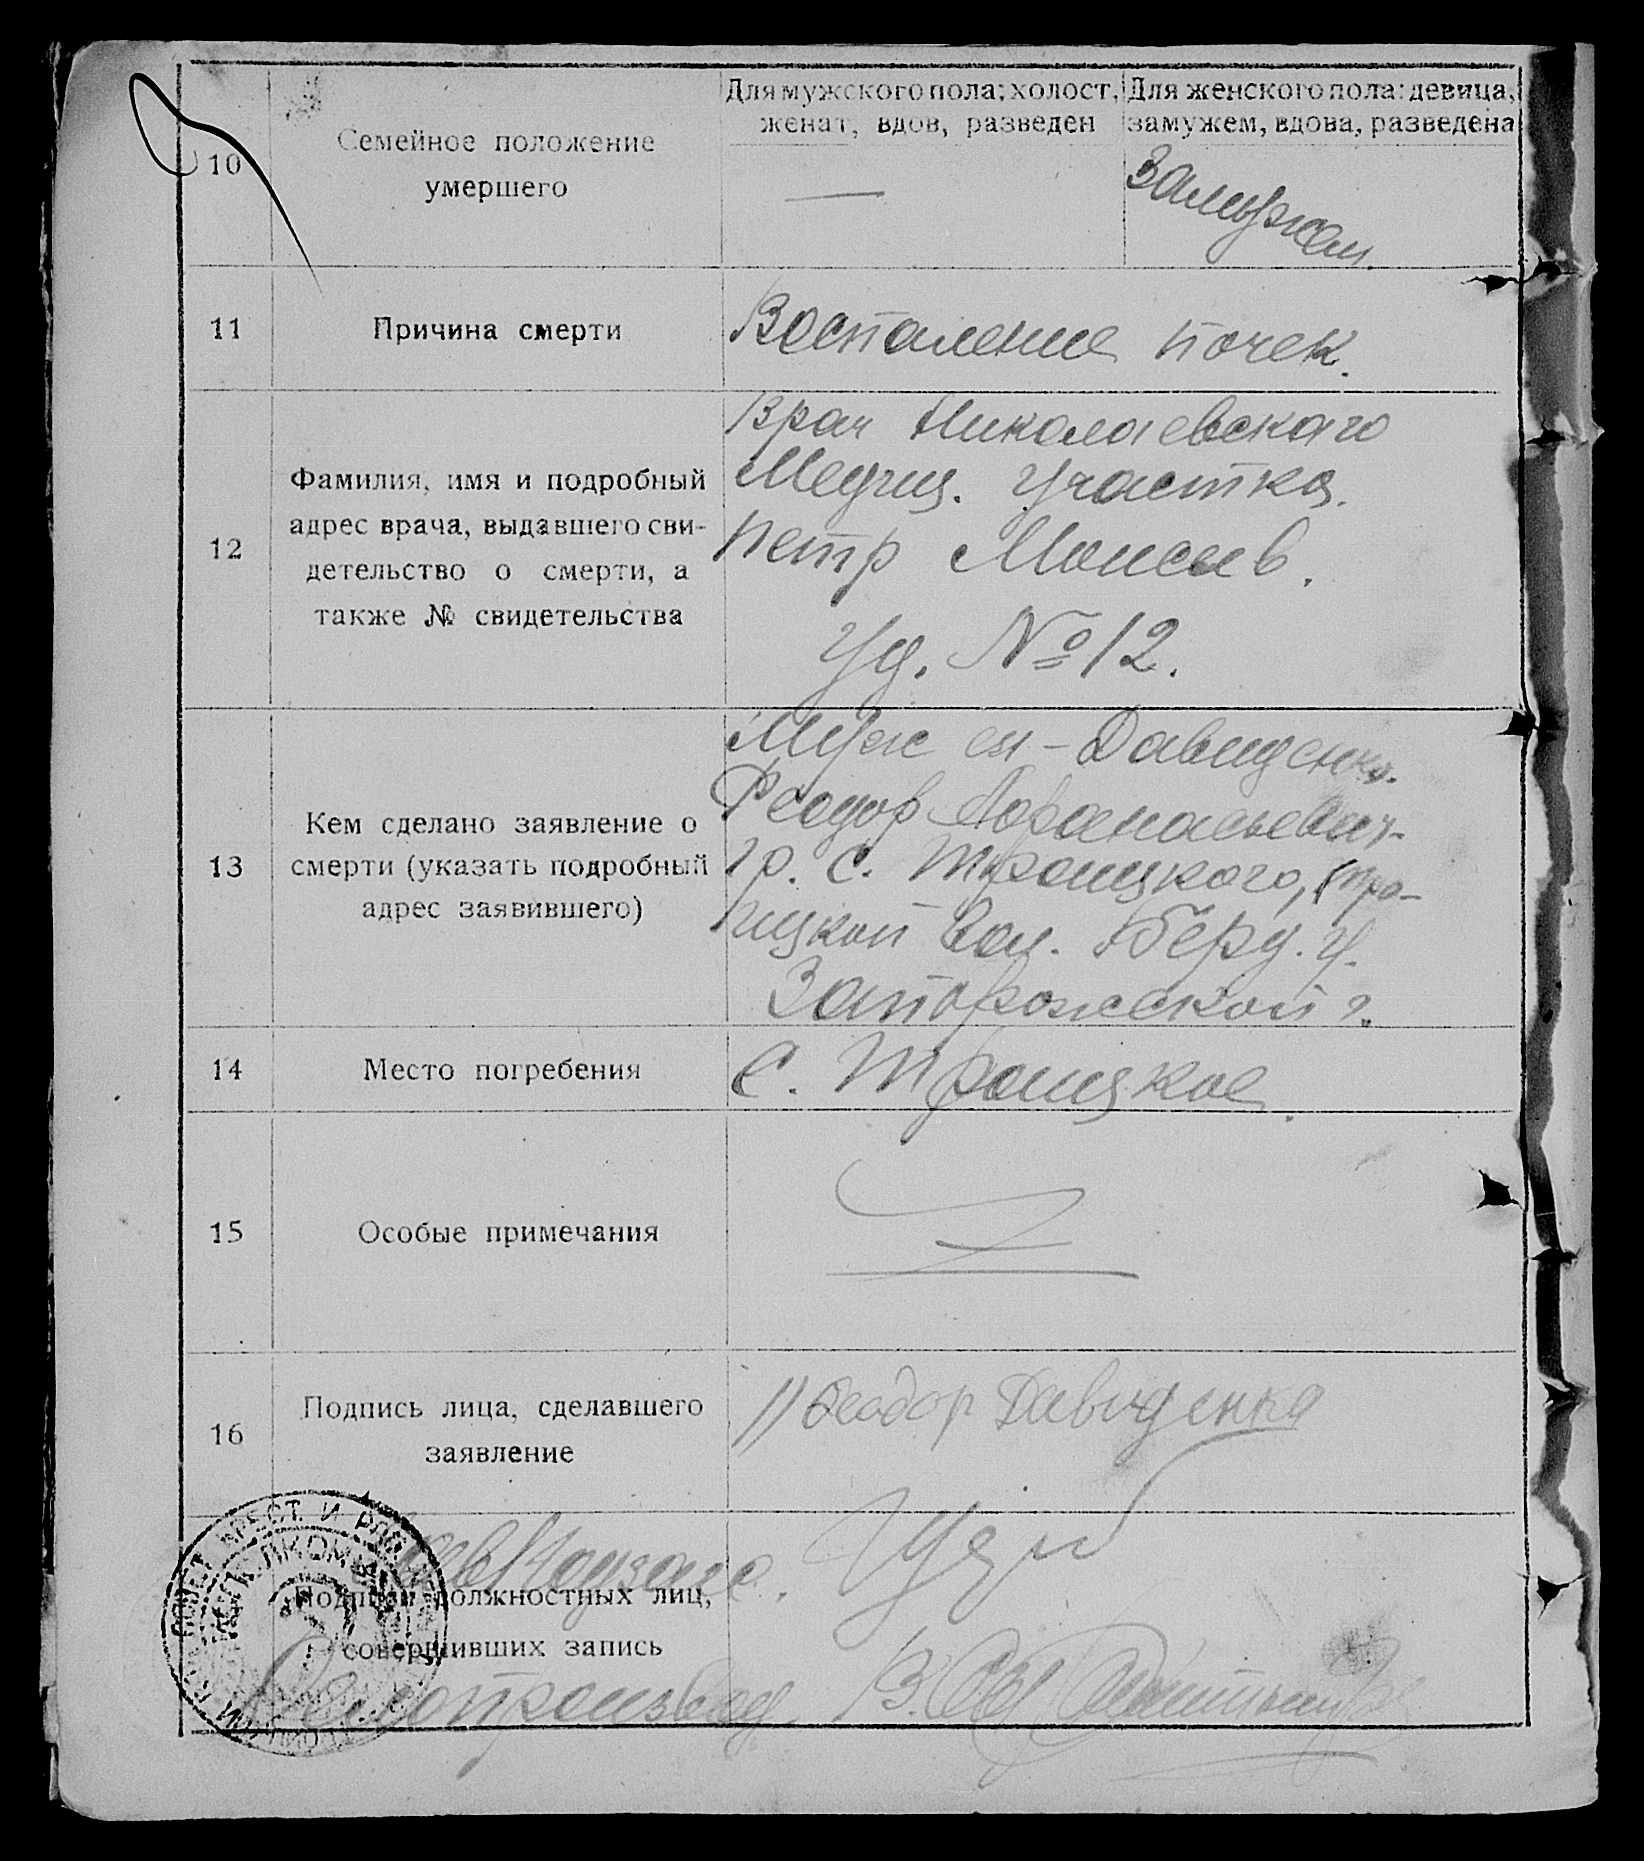 10
Семейное положение
умершего
Для мужского пола: холост,
женат, вдов, разведен
Для женского пола: девица,
замужем, вдова, разведена
—
Замужем.
11
Причина смерти
Воспаление почек.
12
Фамилия, имя и подробный
адрес врача, выдавшего сви-
детельство о смерти, а
также № свидетельства
Врач Николаевскаго
Медиц. Участка.
Петр Моисеив.
Уд. № 12.
13
Кем сделано заявление о
смерти (указать подробный
адрес заявившего)
Муж ея - Давиденко.
Феодор Афанасьевич-
гр. с. Троицкого, Тро-
ицкой вол. Берд. у.
Запорожской г.
14
Место погребения
С. Троицкое.
15
Особые примечания
16
Подпись лица, сделавшего
заявление
1) Феодор Давиденка
Зав
Подписи должностных лиц,
совершивших запись
Делопроизвод. В.